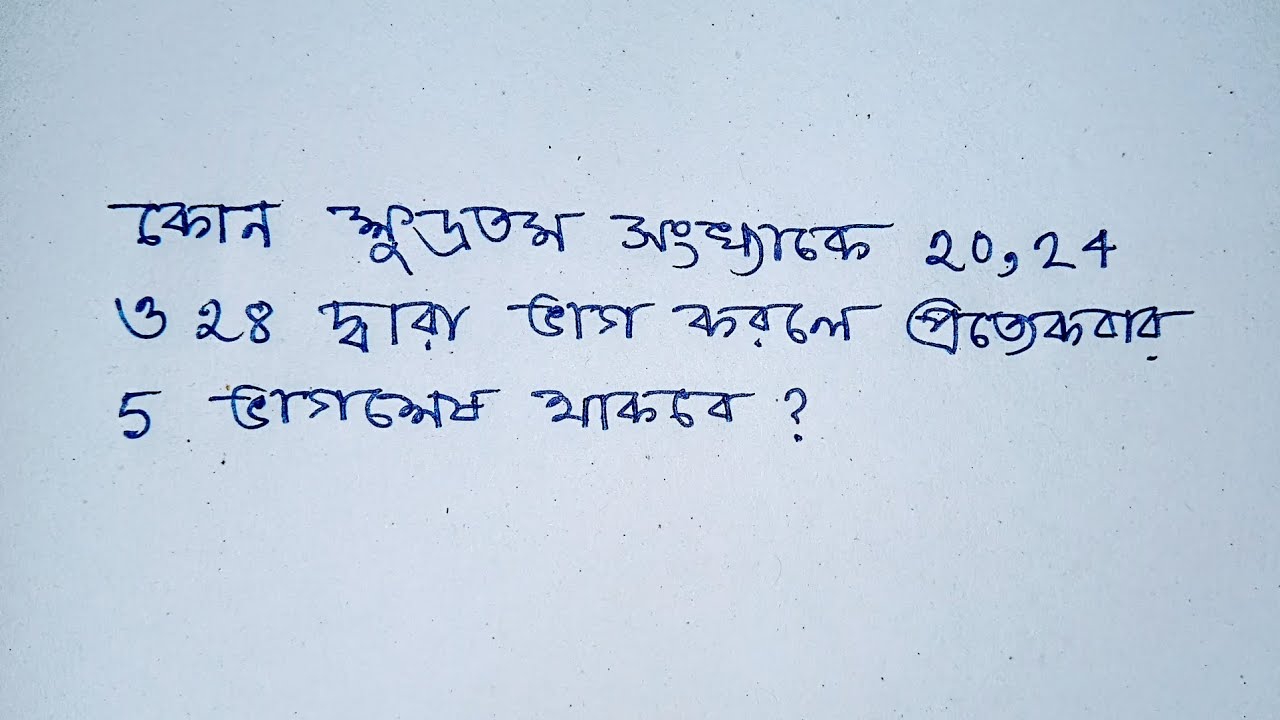 কোন ক্ষুদ্রতম সংখ্যাকে 20,24
ও 28 দ্বারা ভাগ করলে প্রত্যেকবার
5 ভাগশেষ থাকবে ?